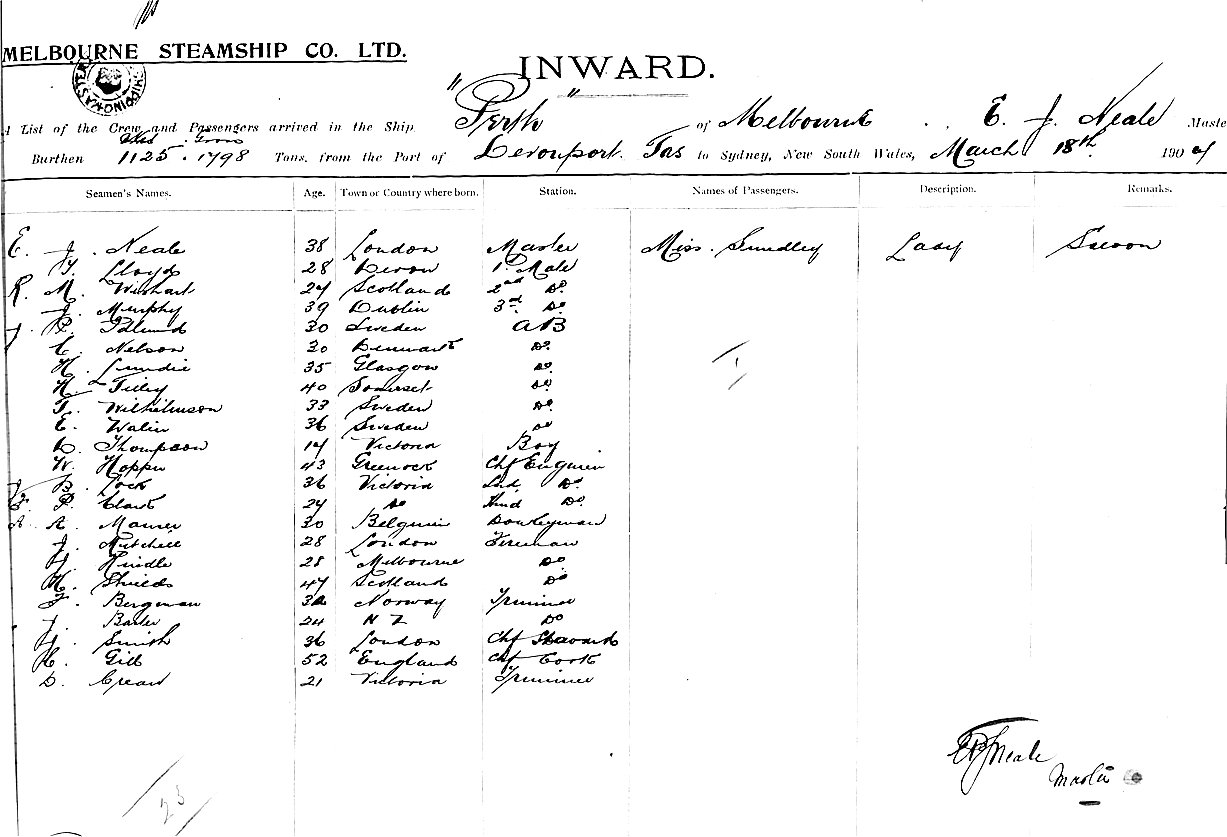 MELBOURNE STEAMSHIP CO. LTD.
SHIPPING MASTER
INWARD.
A List of the Crew and Passengers arrived in the Ship "Perth" of Melbourne E. J. Neale Maste
Gross
Burthen 1125 . 1798 Tons, from the Port of Devonport. Tas to Sydney, New South Wales, March 18th 190
Seamen's Names. Age. Town or Country where born. Station. Names of Passengers. Description. Remarks.
E. J. Neale 38 London Master Miss. Smedley Lady Saloon
Lloyd 28 Devon 1. Mate
R. M. Wishart 27 Scotland 2nd Do.
J. Murphy 39 Dublin 3rd. Do.
30 Sweden AB
C. Nelson 30 Denmark Do.
H. Lundie 35 Glasgow Do.
H. Tilley 40 Somerset Do.
Wilhelmson 33 Sweden Do.
E. Walin 36 Sweden Do
Thompson 17 Victoria Boy
W. 43 Greenock Chf Enguin
B. 36 Victoria 2nd Do.
P. Clark 27 Do Do.
A. 30 Belguim Donkeyman
J. Mitchell 28 London Fireman
Hindle 28 Melbourne Do
H. Shields 47 Scotland Do
Bergman Norway Trimmer
J. 24 N Z Do
Smith 36 London Chf Steward
Gill 52 England Chf Cook
D. 21 Victoria Trimmer
E J Neale
Master
23